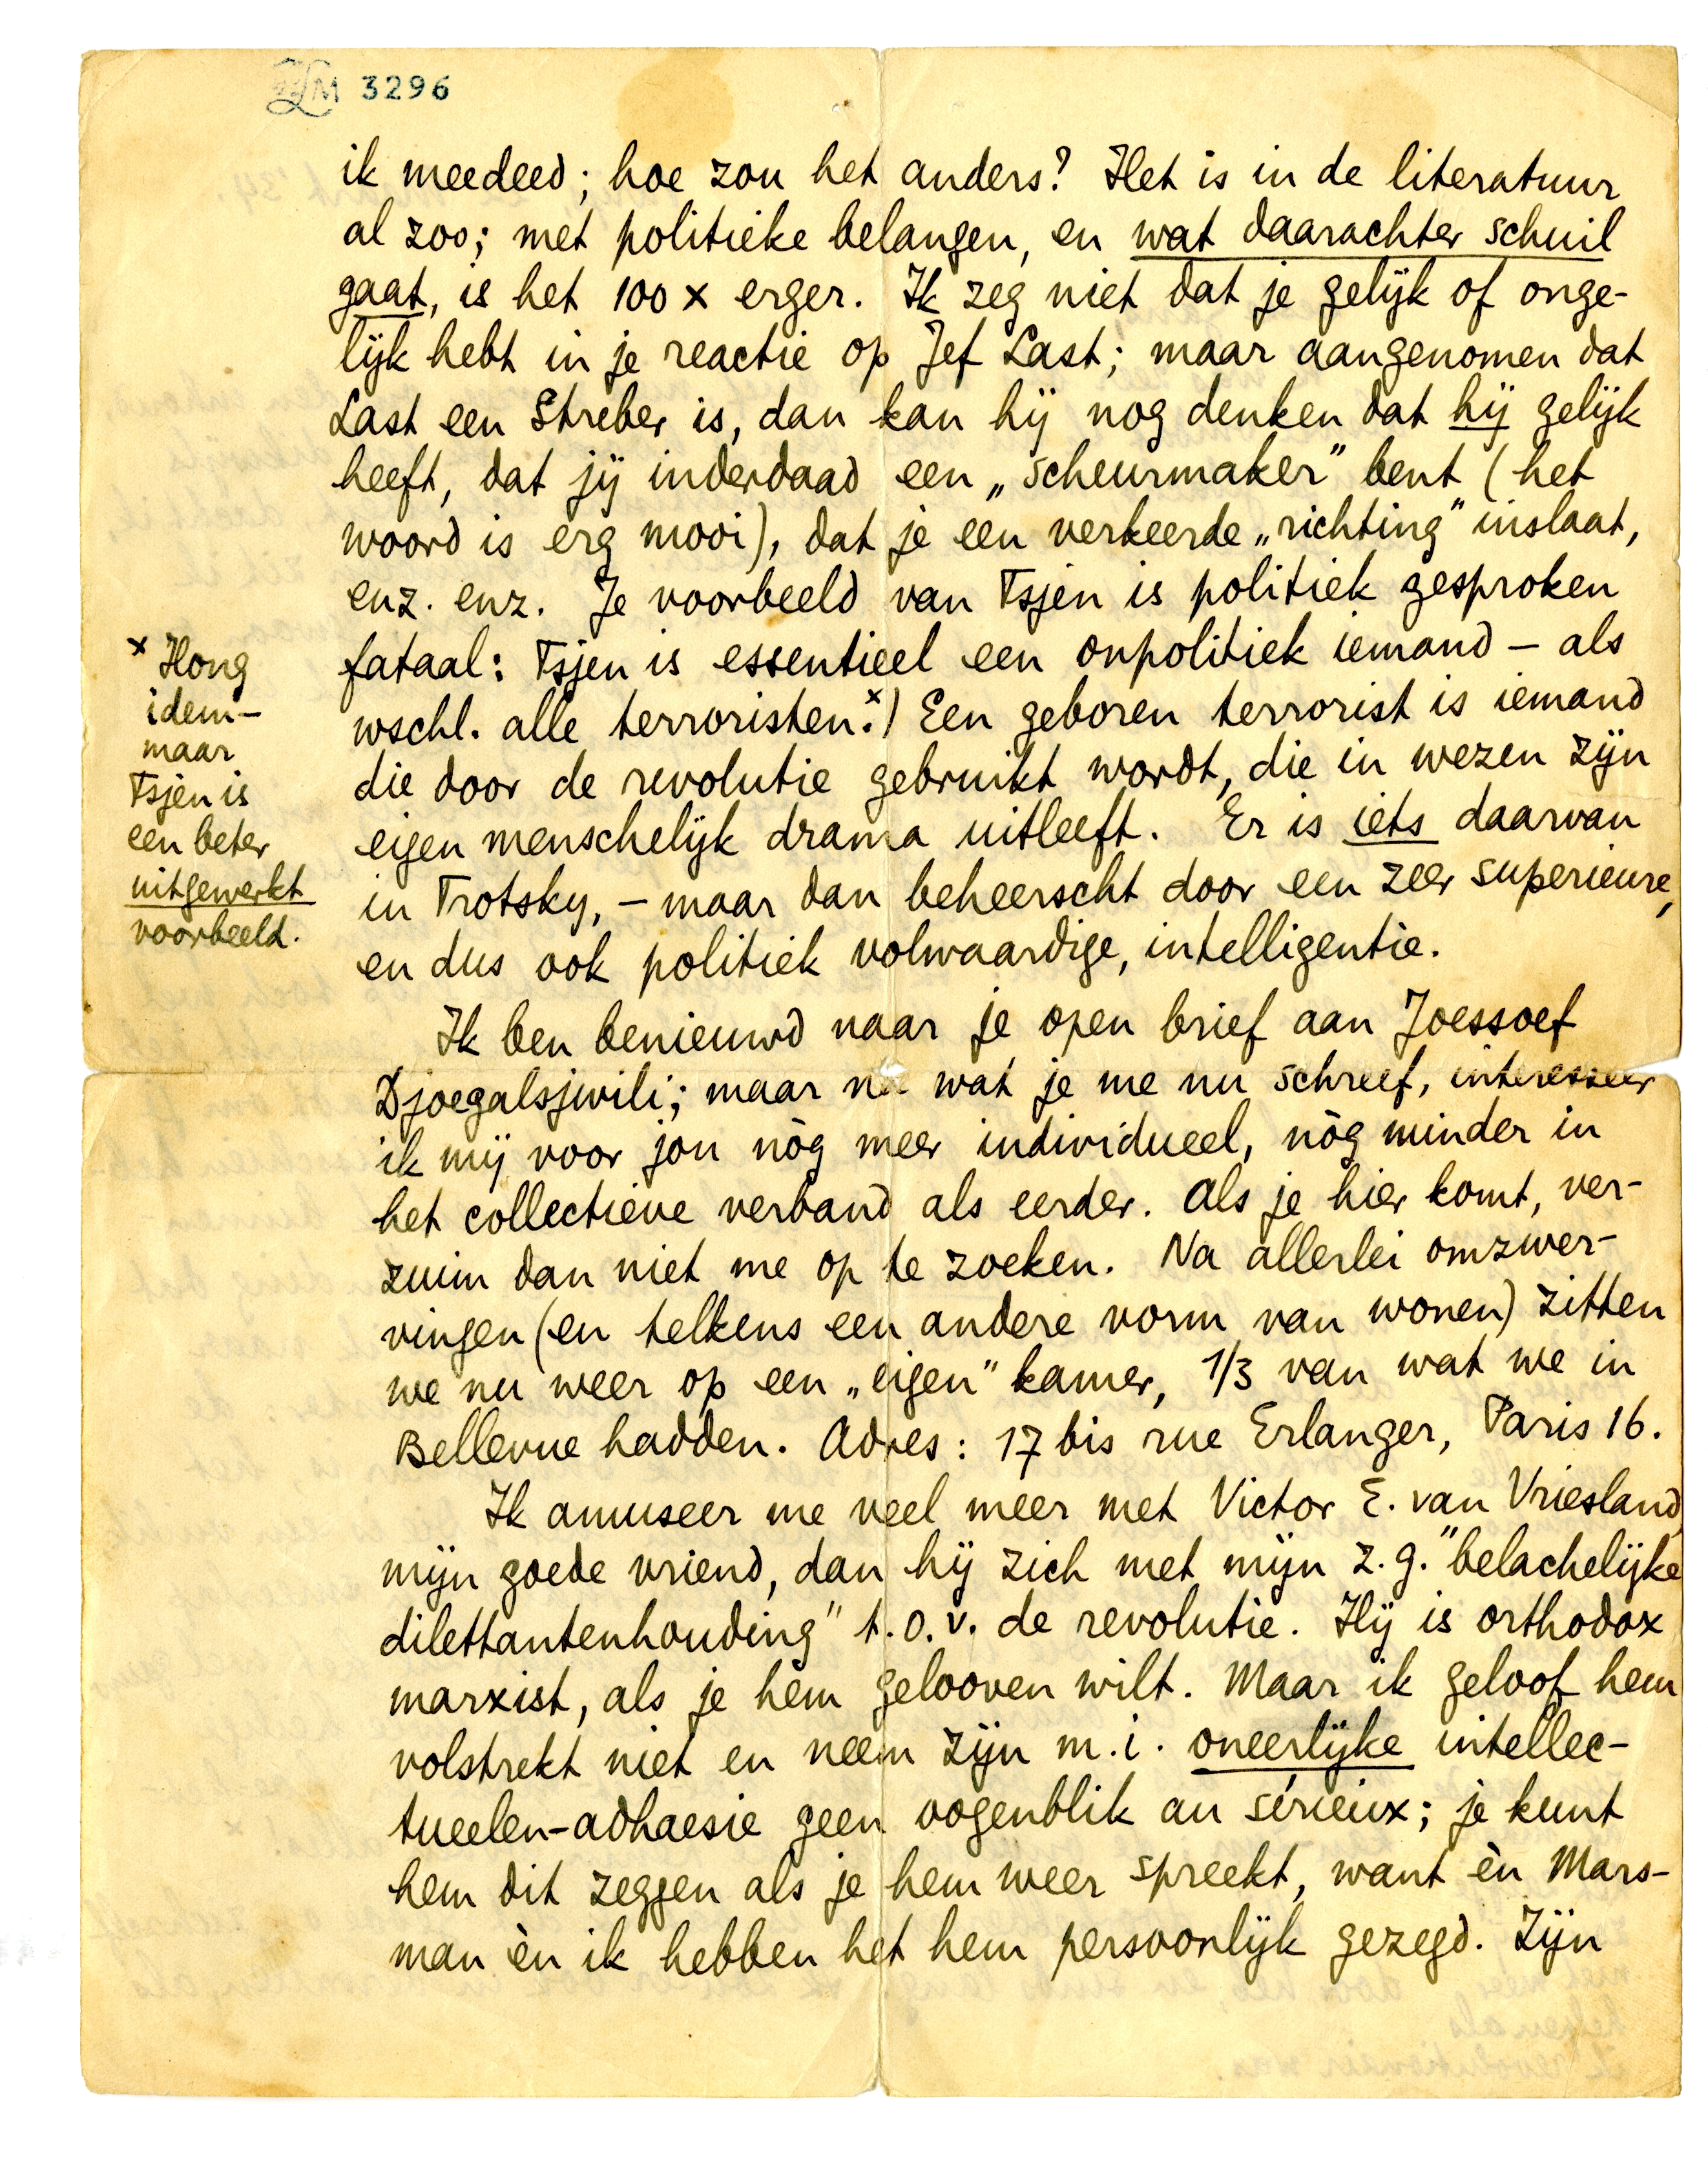 LM 3296
ik meedeed; hoe zou het anders? Het is in de literatuur
al zoo; met politieke belangen, en wat daarachter schuil
gaat, is het 100 x erger. Ik zeg niet dat je gelijk of onge-
lijk hebt in je reactie op Jef Last; maar aangenomen dat
Last een Streber is, dan kan hij nog denken dat hij gelijk
heeft, dat jij inderdaad een „scheurmaker” bent (het
woord is erg mooi), dat je een verkeerde „richting” inslaat,
enz. enz. Je voorbeeld van Tsjen is politiek gesproken
fataal: Tsjen is essentieel een onpolitiek iemand – als
wschl. alle terroristen.x) Een geboren terrorist is iemand
die door de revolutie gebruikt wordt, die in wezen zijn
eigen menschelijk drama uitleeft. Er is iets daarvan
in Trotsky, – maar dan beheerscht door een zeer superieure,
en dus ook politiek volwaardige, intelligentie.
x Hong
idem –
maar
Tsjen is
een beter
uitgewerkt
voorbeeld.
Ik ben benieuwd naar je open brief aan Joessoef
Djoegalsjwili; maar na wat je me nu schreef, interesseer
ik mij voor jou nòg meer individueel, nòg minder in
het collectieve verband als eerder. Als je hier komt, ver-
zuim dan niet me op te zoeken. Na allerlei omzwer-
vingen (en telkens een andere vorm van wonen) zitten
we nu weer op een „eigen” kamer, 1/3 van wat we in
Bellevue hadden. Adres: 17 bis rue Erlanger, Paris 16.
Ik amuseer me veel meer met Victor E. van Vriesland,
mijn goede vriend, dan hij zich met mijn z.g. "belachelijke
dilettantenhouding" t.o.v. de revolutie. Hij is orthodox
marxist, als je hèm gelooven wilt. Maar ik geloof hem
volstrekt niet en neem zijn m.i. oneerlijke intellec-
tueelen-adhaesie geen oogenblik au sérieux; je kunt
hem dit zeggen als je hem weer spreekt, want èn Mars-
man èn ik hebben het hem persoonlijk gezegd. Zijn